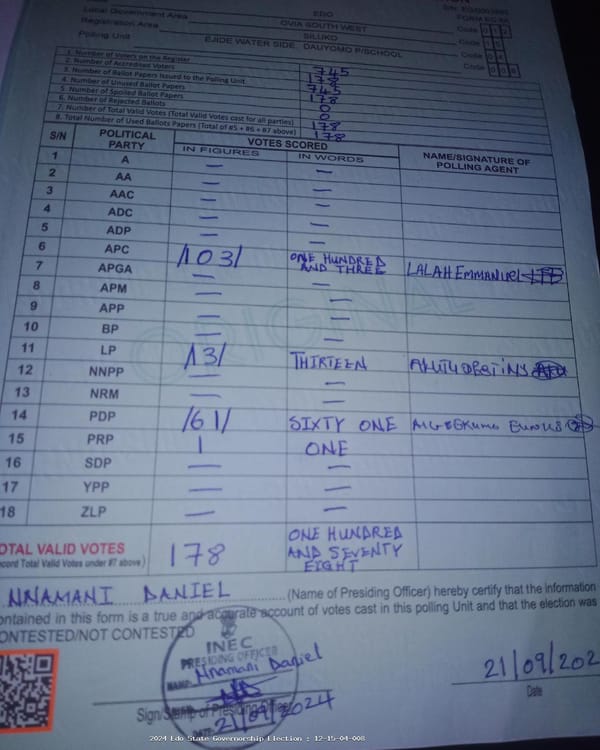 FORM EC 8A
Local Government Area EDO
Registration Area OVIA SOUTH WEST Code
SILUKO Code
Polling Unit EJIDE WATER SIDE, DAUYOMO P/SCHOOL Code
Code
1. Number of Voters on the Register 745
2. Number of Accredited Voters 178
3. Number of Ballot Papers Issued to the Polling Unit 745
4. Number of Unused Ballot Papers
5. Number of Spoiled Ballot Papers 0
6. Number of Rejected Ballots 0
7. Number of Total Valid Votes (Total Valid Votes cast for all parties) 178
8. Total Number of Used Ballots Papers (Total of #5 + #6 + #7 above) 178
S/N POLITICAL PARTY VOTES SCORED NAME/SIGNATURE OF POLLING AGENT
IN FIGURES IN WORDS
1 A — —
2 AA — —
3 AAC — —
4 ADC — —
5 ADP — —
6 APC /103/ ONE HUNDRED AND THREE LALAH EMMANUEL
7 APGA — —
8 APM — —
9 APP — —
10 BP — —
11 LP /13/ THIRTEEN
12 NNPP — —
13 NRM — —
14 PDP /61/ SIXTY ONE
15 PRP 1 ONE
16 SDP — —
17 YPP — —
18 ZLP — —
ORIGINAL
TOTAL VALID VOTES 178 ONE HUNDRED AND SEVENTY EIGHT
(Record Total Valid Votes under #7 above)
NNAMANI DANIEL (Name of Presiding Officer) hereby certify that the information
contained in this form is a true and accurate account of votes cast in this polling Unit and that the election was
CONTESTED/NOT CONTESTED
INEC
PRESIDING OFFICER
NAME: Nnamani Daniel
21/09/2024
Sign/Stamp of Presiding Officer
21/09/202
Date
2024 Edo State Governorship Election : 12-15-04-008